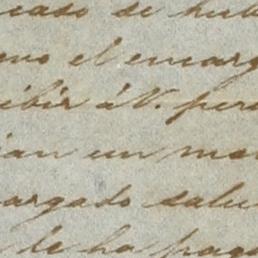 caso se hub
el encarg
cibir á V. pers
ian un mo
cargado salu
de ha paga